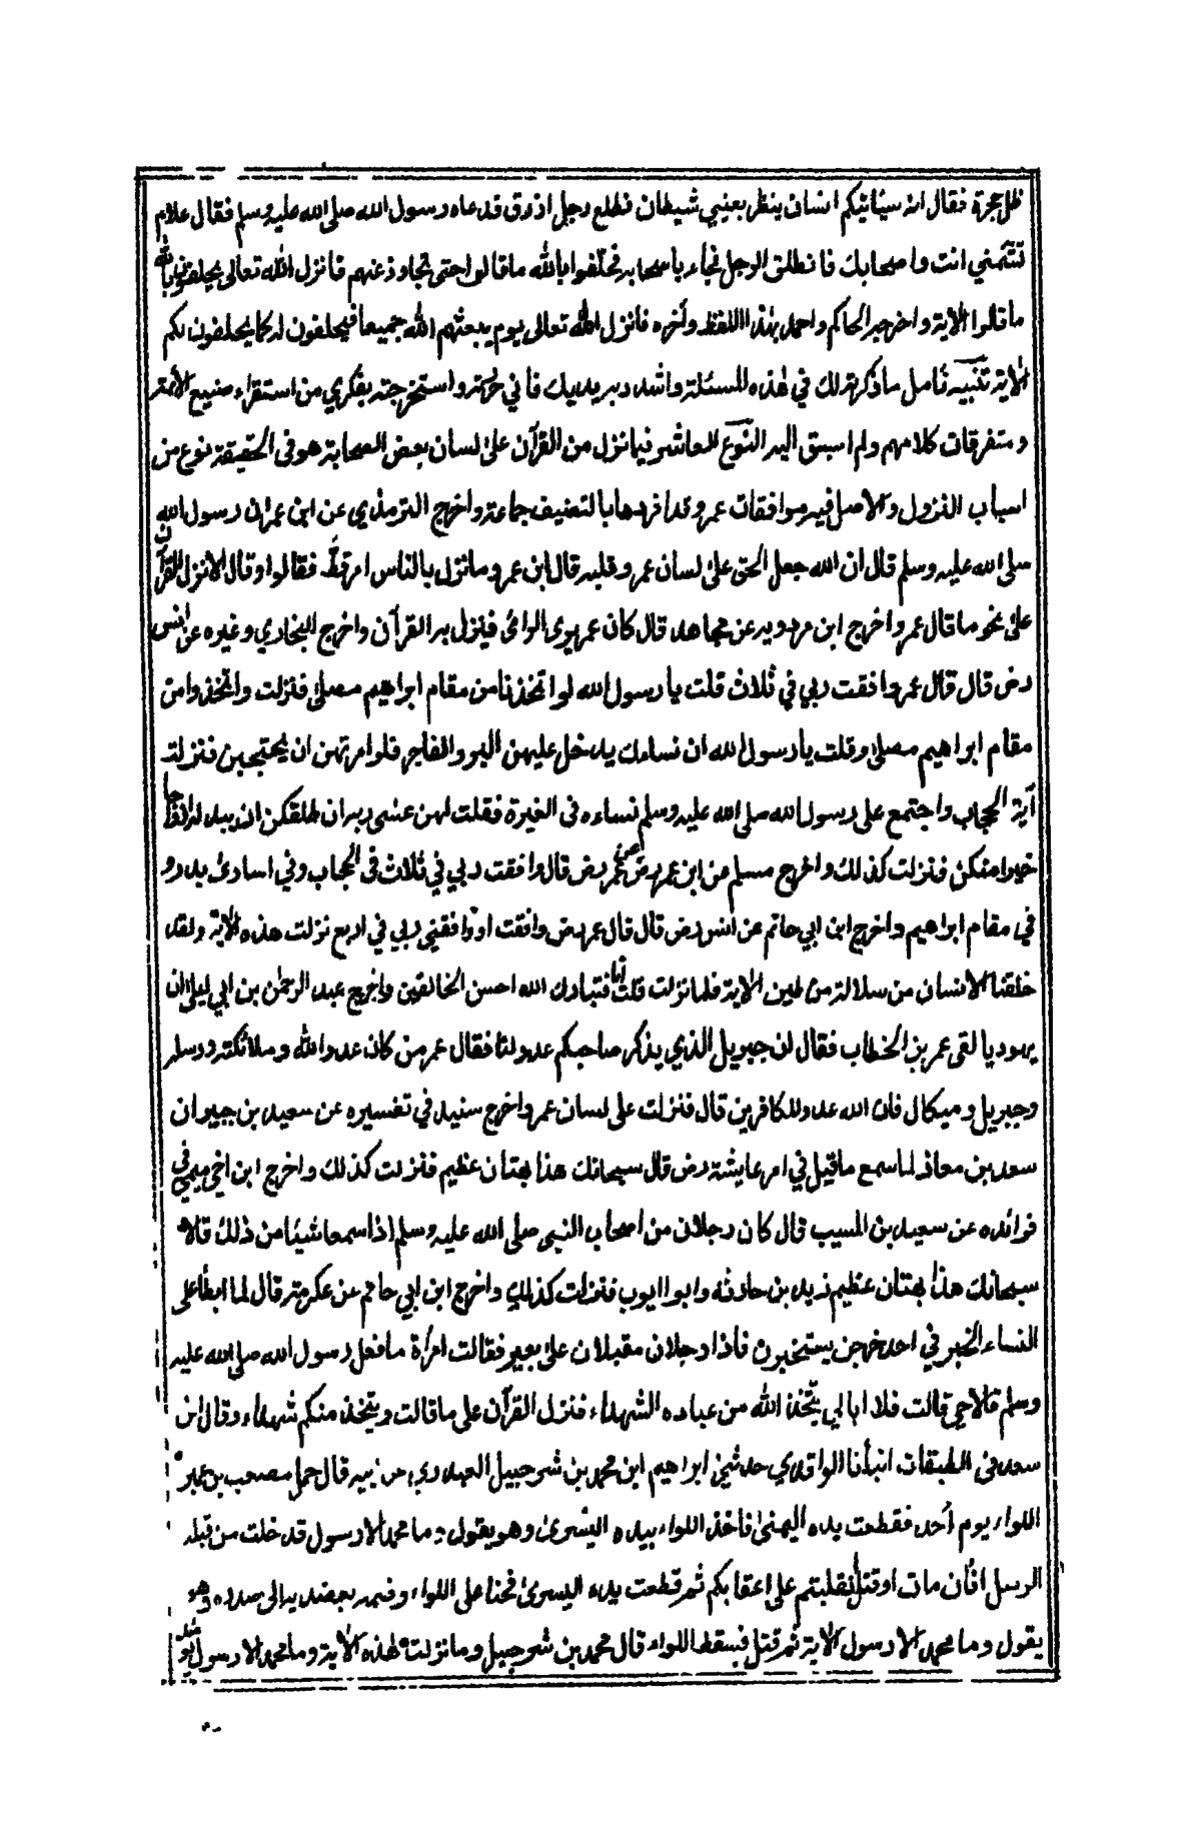 ظل حجرة فقال انه سيأتيكم انسان ينظر بعيني شيطان فطلع رجل ازرق فدعاه رسول الله صلى الله عليه وسلم فقال علام
تشتمني انت واصحابك فانطلق الرجل فجاء باصحابه فحلفوا بالله ما قالوا حتى تجاوز عنهم فانزل الله تعالى يحلفون بالله
ما قالوا الاية واخرجه الحاكم واحمد بهذا اللفظ وآخره فانزل الله تعالى يوم يبعثهم الله جميعا فيحلفون له كما يحلفون لكم
الاية تنبيه تأمل ما ذكرته لك في هذه المسئلة واشدد به يديك فاني حررته واستخرجته بفكري من استقراء صنيع الائمة
ومتفرقات كلامهم ولم اسبق اليه النوع العاشر فيما نزل من القرآن على لسان بعض الصحابة هو في الحقيقة نوع من
اسباب النزول والاصل فيه موافقات عمر وقد افردها بالتصنيف جماعة واخرج الترمذي عن ابن عمر ان رسول الله
صلى الله عليه وسلم قال ان الله جعل الحق على لسان عمر وقلبه قال ابن عمر وما نزل بالناس امر قط فقالوا وقال الا نزل القرآن
على نحو ما قال عمر واخرج ابن مردويه عن مجاهد قال كان عمر يرى الرائ فينزل به القرآن واخرج البخاري وغيره عن انس
رض قال قال عمر وافقت ربي في ثلاث قلت يا رسول الله لو اتخذنا من مقام ابراهيم مصلى فنزلت واتخذوا من
مقام ابراهيم مصلى وقلت يا رسول الله ان نساءك يدخل عليهن البر والفاجر فلو امرتهن ان يحتجبن فنزلت
آية الحجاب واجتمع على رسول الله صلى الله عليه وسلم نساءه في الغيرة فقلت لهن عسى ربه ان طلقكن ان يبدله ازواجا
خيرا منكن فنزلت كذلك واخرج مسلم عن ابن عمر رض عن عمر رض قال وافقت ربي في ثلاث في الحجاب وفي اسارى بدر و
في مقام ابراهيم واخرج ابن ابي حاتم عن انس رض قال قال عمر رض وافقت او وافقني ربي في اربع نزلت هذه الاية ولقد
خلقنا الانسان من سلالة من طين الاية فلما نزلت قلت أنا فتبارك الله احسن الخالقين واخرج عبد الرحمن بن ابي ليلى ان
يهوديا لقى عمر بن الخطاب فقال ان جبريل الذي يذكر صاحبكم عدو لنا فقال عمر من كان عدوا لله وملائكته ورسله
وجبريل وميكال فان الله عدو للكافرين قال فنزلت على لسان عمر واخرج سنيد في تفسيره عن سعيد بن جبير ان
سعد بن معاذ لما سمع ما قيل في امر عايشة رض قال سبحانك هذا بهتان عظيم فنزلت كذلك واخرج ابن اخي ميمي في
فوائده عن سعيد بن المسيب قال كان رجلان من اصحاب النبي صلى الله عليه وسلم اذا سمعا شيئا من ذلك قالا
سبحانك هذا بهتان عظيم زيد بن حارثة وابو ايوب فنزلت كذلك واخرج ابن ابي حاتم عن عكرمة قال لما ابطأ على
النساء الخبر في احد خرجن يستخبرن فاذا رجلان مقبلان على بعير فقالت امرأة ما فعل رسول الله صلى الله عليه
وسلم قالا حي قالت فلا ابالي يتخذ الله من عباده الشهداء فنزل القرآن على ما قالت ويتخذ منكم شهداء وقال ابن
سعد في الطبقات انبأنا الواقدي حدثني ابراهيم ابن محمد بن شرحبيل العبدري عن ابيه قال حمل مصعب بن عمير
اللواء يوم أحد فقطعت يده اليمنى فأخذ اللواء بيده اليسرى وهو يقول وما محمد الا رسول قد خلت من قبله
الرسل افأن مات او قتل انقلبتم على اعقابكم ثم قطعت يده اليسرى فحنا على اللواء وضمه بعضديه الى صدره وهو
يقول وما محمد الا رسول الاية ثم قتل فسقط اللواء قال محمد بن شرحبيل وما نزلت هذه الاية وما محمد الا رسول يومئذ